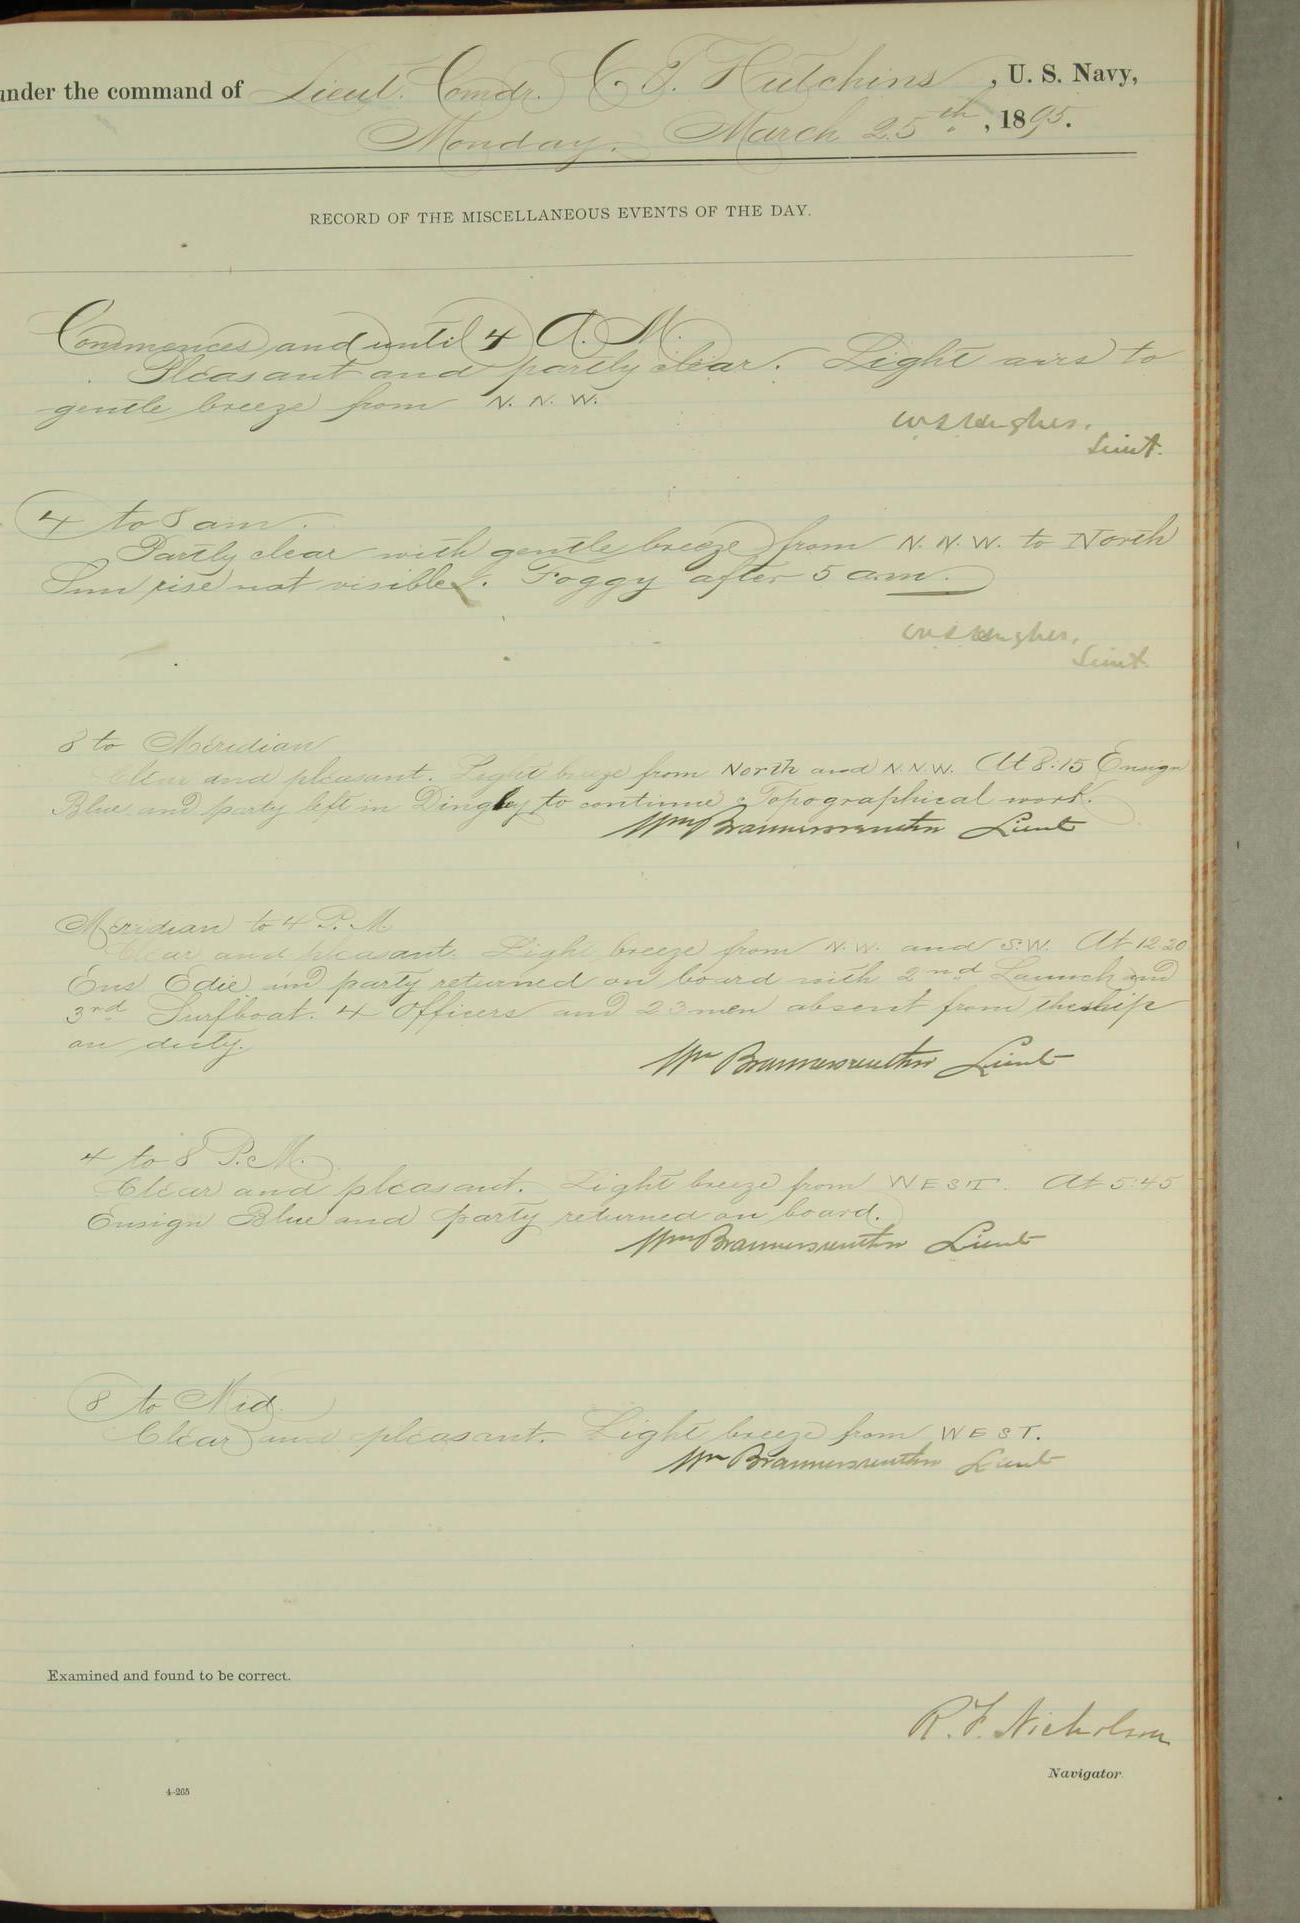 under the command of Lieut. Comdr. C. T. Hutchins, U. S. Navy,
Monday. March 25th, 1895.
RECORD OF THE MISCELLANEOUS EVENTS OF THE DAY.
Commences and until 4 A. M.
Pleasant and partly clear. Light airs to
gentle breeze from N. N. W.
W S Hughes.
Lieut.
4 to 8 am.
Partly clear with gentle breeze from N. N. W. to North
Sun rise not visible. Foggy after 5 a.m.
W S Hughes.
Lieut.
8 to Meridian
Clear and pleasant. Light breeze from North and N.N.W. At 8:15 Ensign
Blue and party left in Dinghy to continue Topographical work.
Wm Braunersreuther Lieut
Meridian to 4 P. M
Clear and pleasant. Light breeze from N.W. and S.W. At 12 20
Ens Edie and party returned on board with 2nd Launch and
3rd Surfboat. 4 Officers and 23 men absent from the ship
on duty.
Wm Braunersreuther Lieut
4 to 8 P. M.
Clear and pleasant. Light breeze from WEST. At 5:45
Ensign Blue and party returned on board.
Wm Braunersreuther Lieut
8 to Mid.
Clear and pleasant. Light breeze from WEST.
Wm Braunersreuther Lieut
Examined and found to be correct.
R. F. Nicholson
Navigator.
4-265